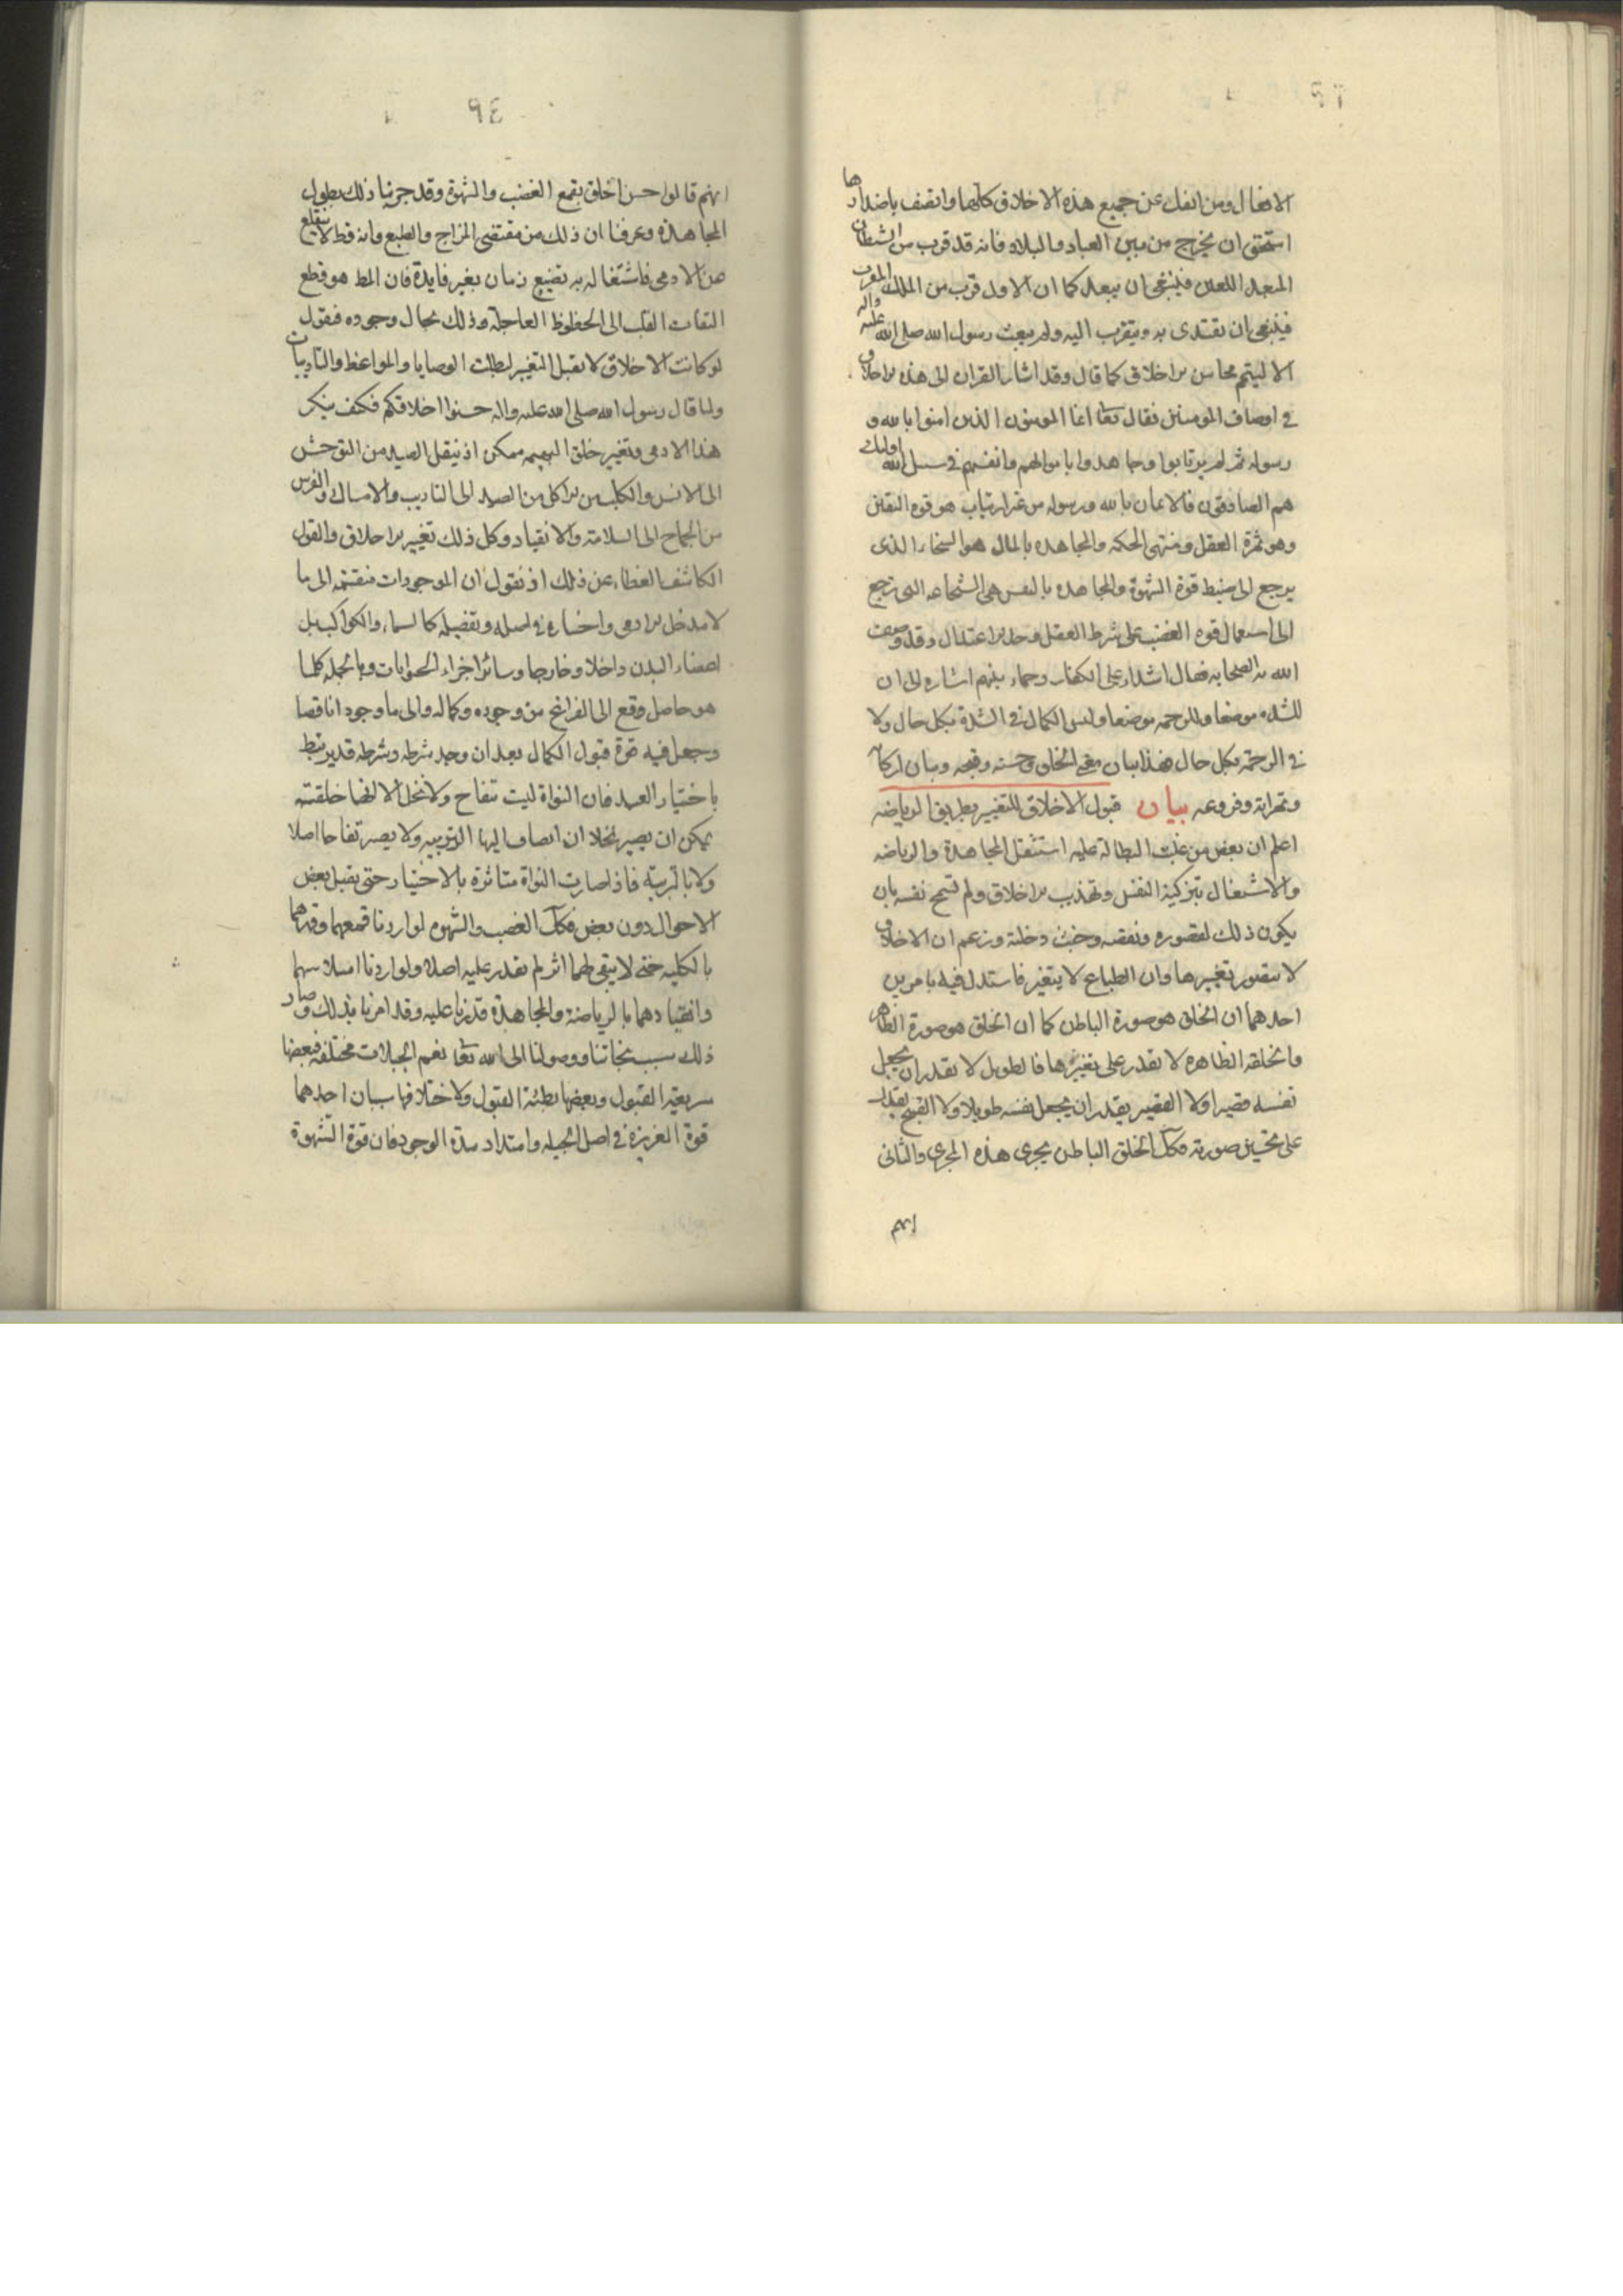 الافعال ومن انفك عن جميع هذه الاخلاق كلها واتصف باضدادها
استحق ان يخرج من بين العباد والبلاد فانه قد قرب من الشيطان
المبعد اللعين فينبغي ان يبعد كما ان الاول قرب من الملك المقرب
فينبغي ان يقتدى به ويتقرب اليه ولم يبعث رسول الله صلى الله عليه واله
الا ليتم محاسن الاخلاق كما قال وقد اشار القران الى هذه الاخلاق
في اوصاف المومنين فقال تعا انما المومنون الذين امنوا بالله و
رسوله ثم لم يرتابوا وجاهدوا باموالهم وانفسهم في سبيل الله اولئك
هم الصادقون فالايمان بالله ورسوله من غير ارتياب هو قوة اليقين
وهو ثمرة العقل ومنتهى الحكمه والمجاهده بالمال هو السخاء الذى
يرجع الى ضبط قوة الشهوة والمجاهده بالنفس هى الشجاعه التى ترجع
الى استعمال قوه الغضب على شرط العقل وحد الاعتدال وقد وصف
الله به الصحابه فقال اشداء على الكفار رحماء بينهم اشاره الى ان
للشده موضعا وللرحمه موضعا وليس الكمال في الشدة بكل حال ولا
في الرحمة بكل حال فهذا بيان معنى الخلق وحسنه وقبحه وبيان اركانه
وثمراته وفروعه بيان قبول الاخلاق للتغيير بطريق الرياضه
اعلم ان بعض من غلبت البطالة عليه استثقل المجاهدة والرياضه
والاشتغال بتزكية النفس وتهذيب الاخلاق ولم تسمح نفسه بان
يكون ذلك لقصوره ونقصه وخبث دخلته وزعم ان الاخلاق
لا يتصور تغييرها وان الطباع لا يتغير فاستدل فيه بامرين
احدهما ان الخلق هو صورة الباطن كما ان الخلق هو صورة الظاهر
والخلقه الظاهره لا يقدر على تغييرها فالطويل لا يقدر ان يجعل
نفسه قصيرا ولا القصير يقدر ان يجعل نفسه طويلا ولا القبيح يقدر
على تحسين صورته فكك الخلق الباطن يجرى هذه المجرى والثانى
انهم
٩٤
انهم قالوا حسن الخلق بقمع الغضب والشهوة وقد جربنا ذلك بطول
المجاهدة وعرفنا ان ذلك من مقتضى المزاج والطبع وانه قط لا ينقطع
عن الادمى فاشتغاله به تضييع زمان بغير فايدة فان المط هو قطع
التفات القلب الى الحظوظ العاجلة وذلك محال وجوده فنقول
لو كانت الاخلاق لا تقبل التغيير لبطلت الوصايا والمواعظ والتاديبات
ولما قال رسول الله صلى الله عليه واله حسنوا اخلاقكم فكيف ينكر
هذا الادمى وتغيير خلق البهيمه ممكن اذ ينقل الصيد من التوحش
الى الانس والكلب من الاكل من الصيد الى التاديب والامساك والفرس
من الجماح الى السلامة والانقياد وكل ذلك تغيير الاخلاق والقول
الكاشف الغطاء عن ذلك اذ نقول ان الموجودات منقسمه الى ما
لا مدخل للادمى واختياره في اصله وتفصيله كالسماء والكواكب بل
اعضاء البدن داخلا وخارجا وسائر اجزاء الحيوانات وبالجمله كلما
هو حاصل وقع الى الفراغ من وجوده وكماله والى ما وجد ناقصا
وجعل فيه قوة قبول الكمال بعد ان وجد شرطه وشرطه قد يرتبط
باختيار العبد فان النواة ليست بتفاح ولا نخل الا انها خلقت
يمكن ان يصير نخلا ان انضاف اليها التربيه ولا يصير تفاحا اصلا
ولا بالتربية فاذا صارت النواة متاثرة بالاختيار حتى يقبل بعض
الاحوال دون بعض فكك الغضب والشهوه لو اردنا قمعهما وقهرهما
بالكليه حتى لا يبقى لهما اثر لم نقدر عليه اصلا ولو اردنا اسلاسهما
وانقيادهما بالرياضة والمجاهدة قدرنا عليه وقد امرنا بذلك وصار
ذلك سبب نجاتنا ووصولنا الى الله تعا نعم الجبلات مختلفه فبعضها
سريعة القبول وبعضها بطئة القبول ولاختلافها سببان احدهما
قوة الغريزة في اصل الجبله وامتداد مدة الوجود فان قوة الشهوة